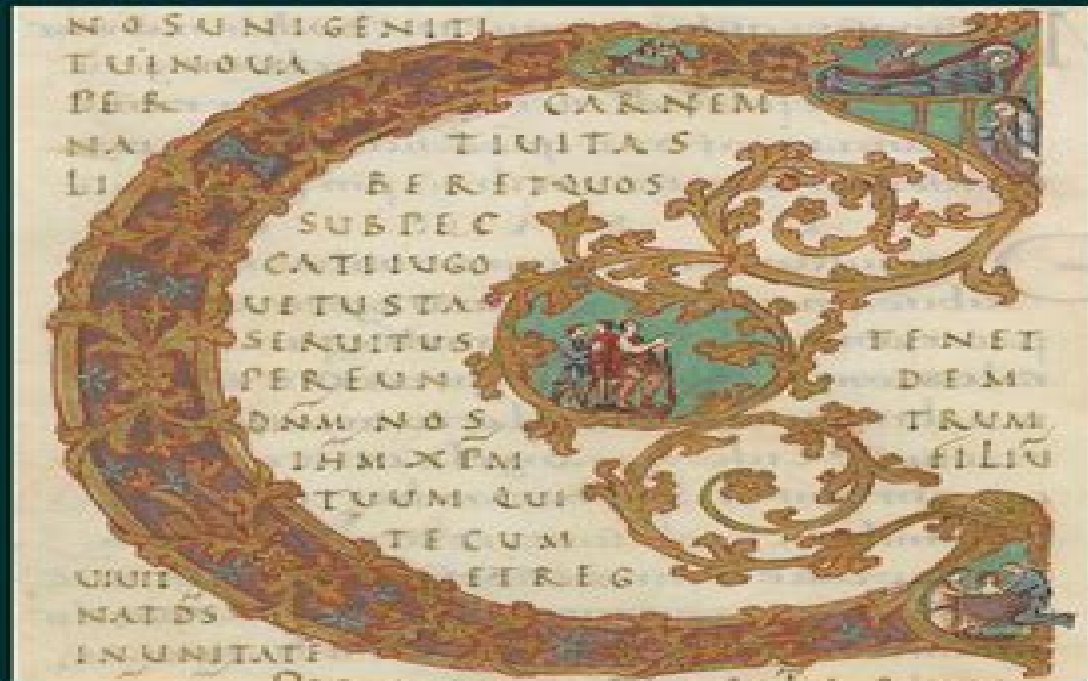 NOS UNIGENITI
TUI NOUA
PER CARNEM
NATIUITAS
LIBERET QUOS
SUB PEC
CATI IUGO
UETUSTA
SERUITUS TENET
PER EUNDEM
DÑM NOSTRUM
IHM XPM FILIŪ
TUUM QUI
TECUM
UIUIT ET REG
NAT DS̄
IN UNITATE